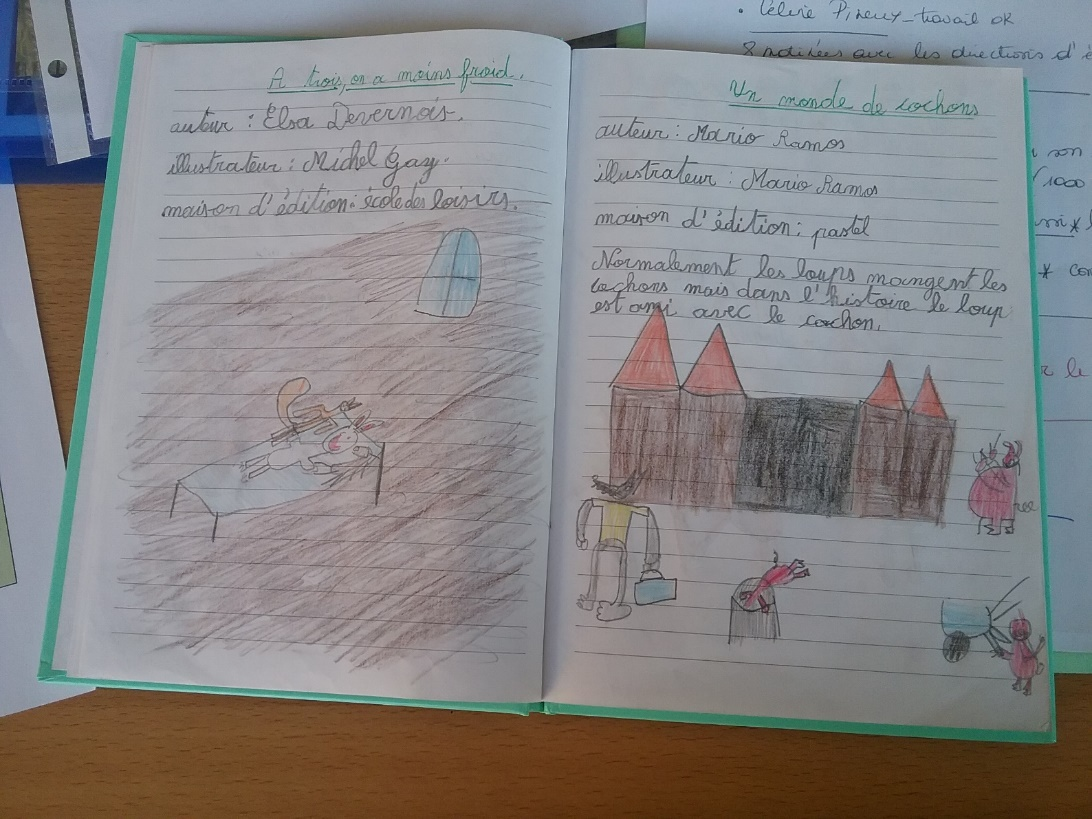 A trois, on a moins froid.
auteur : Elsa Devernois.
illustrateur : Michel Gay.
maison d'édition : école des loisirs.
Un monde de cochons
auteur : Mario Ramos
illustrateur : Mario Ramos
maison d'édition : pastel
Normalement les loups mangent les
cochons mais dans l'histoire le loup
est ami avec le cochon.
travail ok
avec les directions
son
1000